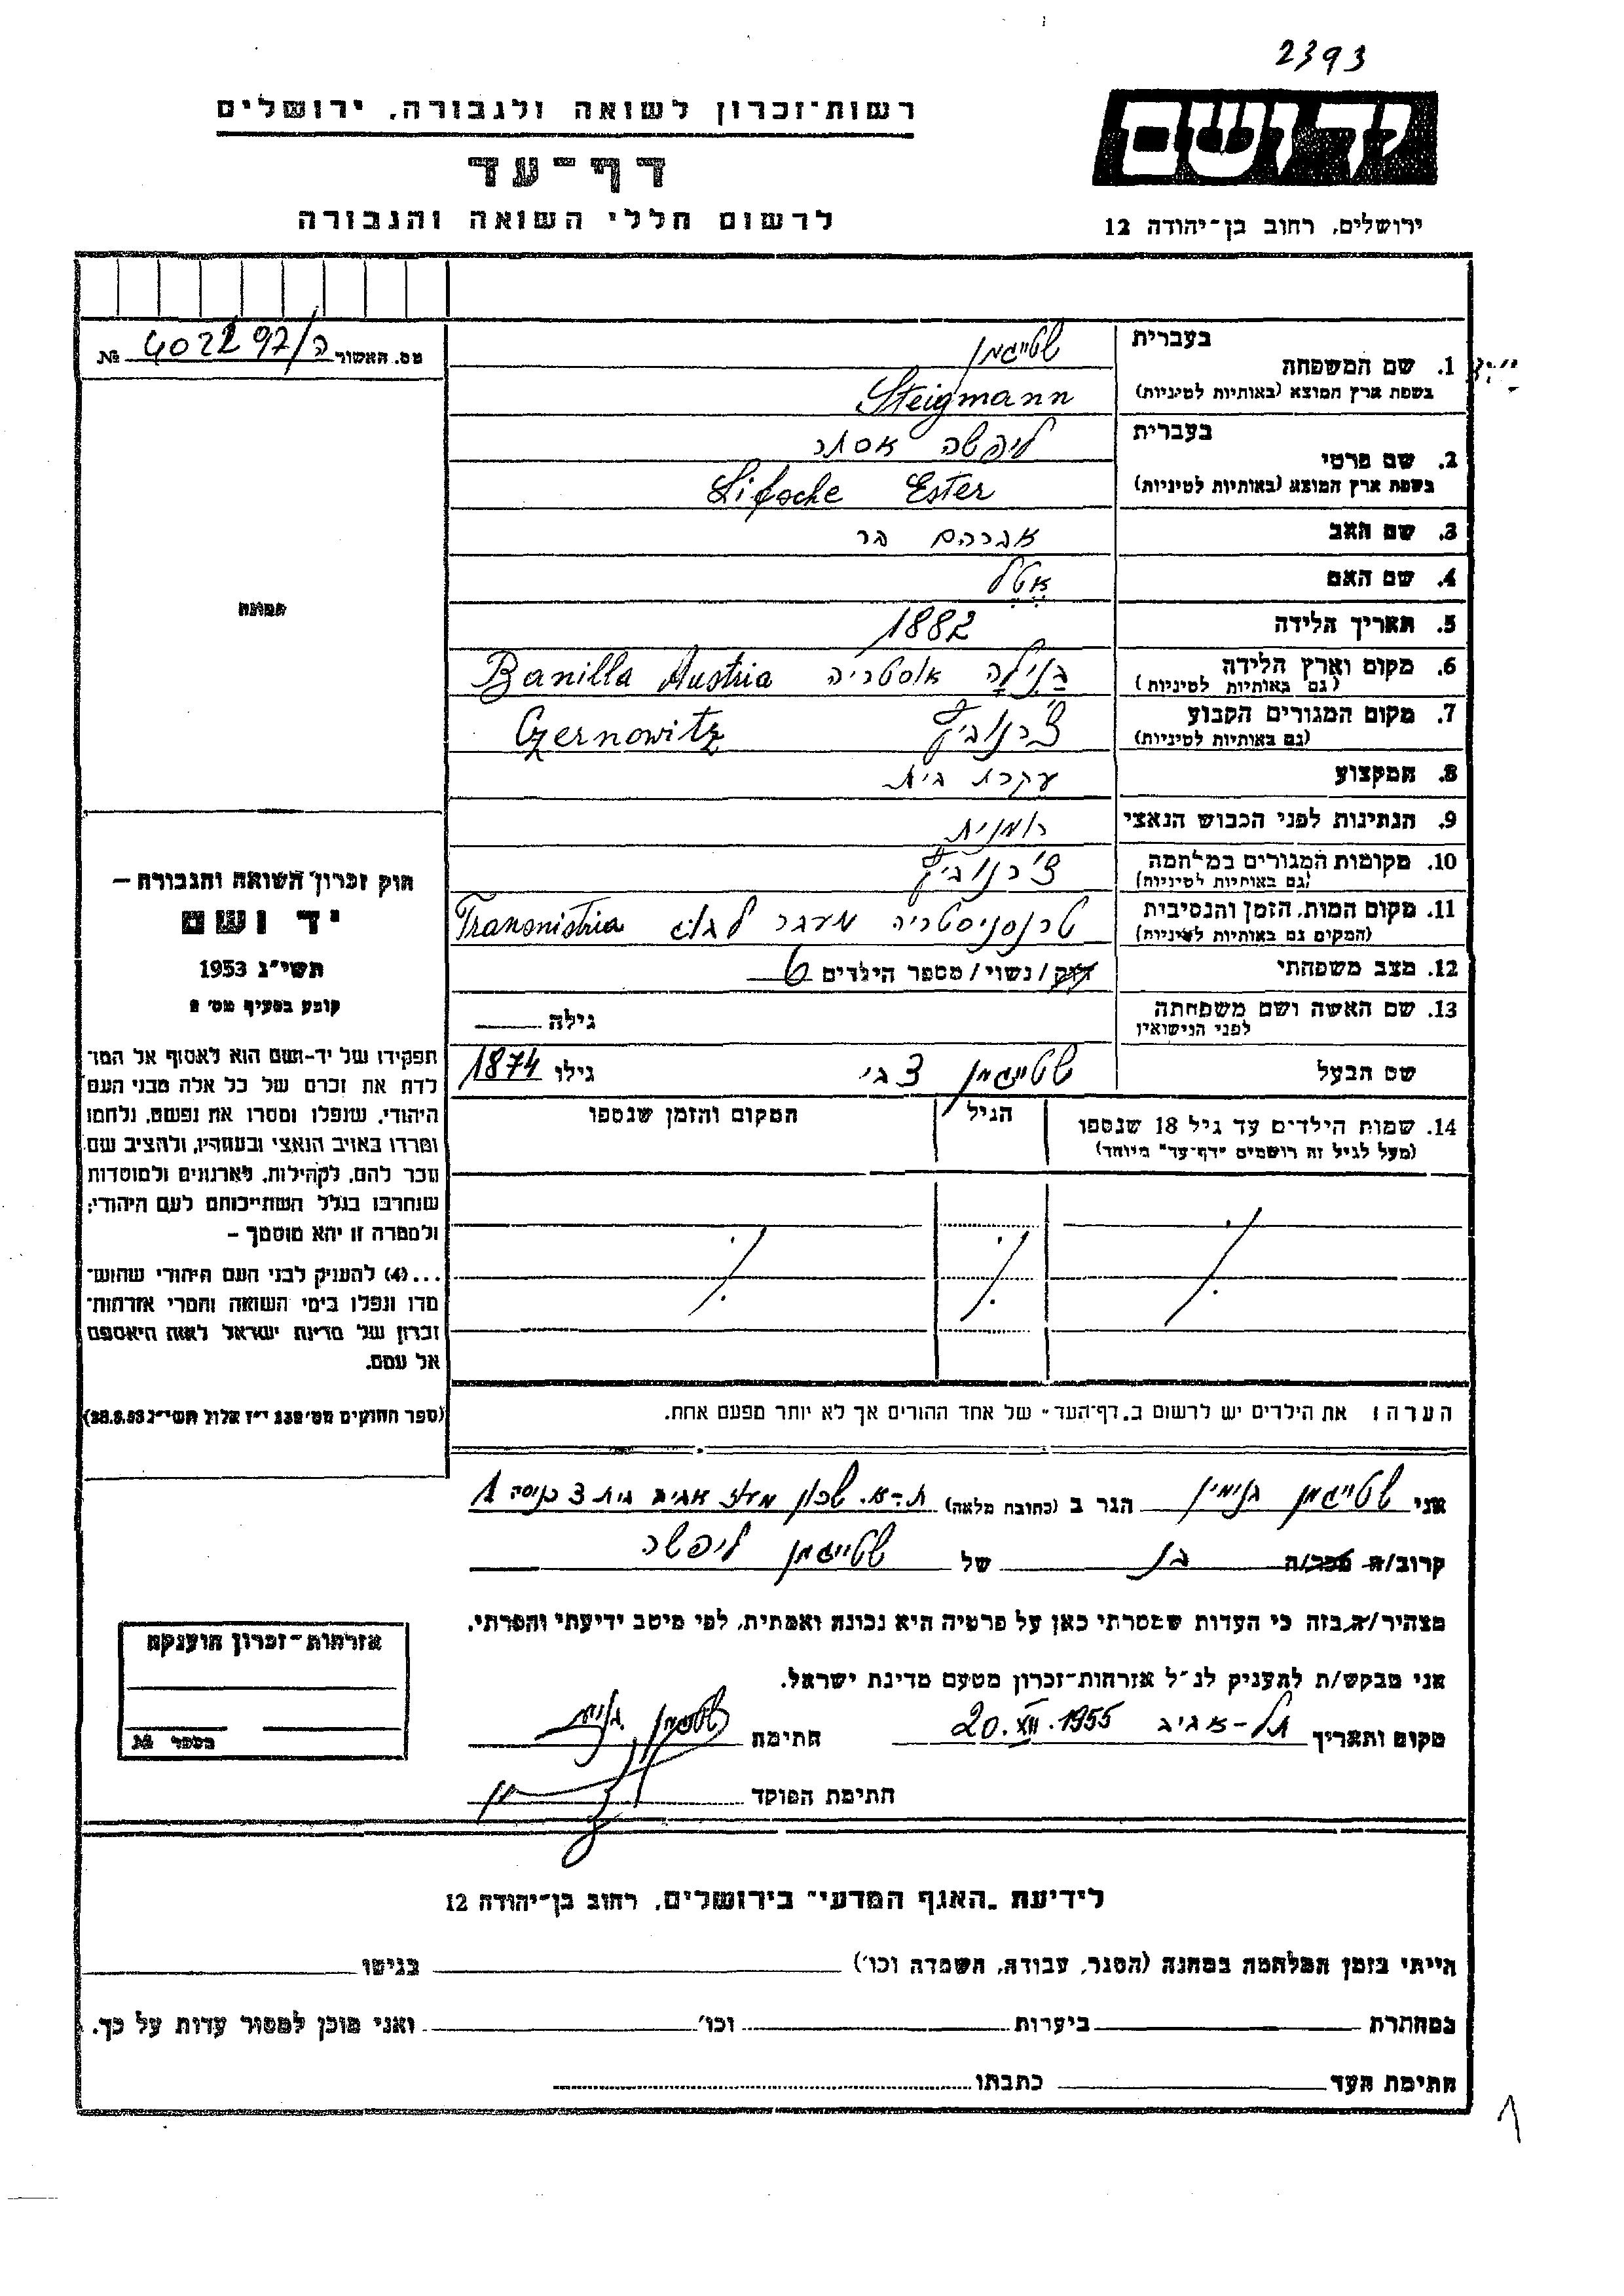 2393
רשות־זכרון לשואה ולגבורה, ירושלים
יד ושם
דף־עד
לרשום חללי השואה והגבורה
ירושלים, רחוב בן־יהודה 12
מס. האשור ה/402297 №
תמונה
חוק זכרון השואה והגבורה –
יד ושם
תשי״ג 1953
קובע בסעיף מס׳ 2
תפקידו של יד-ושם הוא לאסוף אל המו־
לדת את זכרם של כל אלה מבני העם
היהודי, שנפלו ומסרו את נפשם, נלחמו
ומרדו באויב הנאצי ובעוזריו, ולהציב שם
וזכר להם, לקהילות, לארגונים ולמוסדות
שנחרבו בגלל השתייכותם לעם היהודי;
ולמטרה זו יהא מוסמך –
...(4) להעניק לבני העם היהודי שהוש־
מדו ונפלו בימי השואה והמרי אזרחות־
זכרון של מדינת ישראל לאות היאספם
אל עמם.
(ספר החוקים מס׳ 132 י״ז אלול תשי״ג 28.8.53)
בעברית שטייגמן
1. שם המשפחה
בשפת ארץ המוצא (באותיות לטיניות) Steigmann
בעברית ליפשה אסתר
2. שם פרטי
בשפת ארץ המוצא (באותיות לטיניות) Lifsche Ester
3. שם האב אברהם בר
4. שם האם אטל
5. תאריך הלידה 1882
6. מקום וארץ הלידה בנילה אוסטריה Banilla Austria
(גם באותיות לטיניות)
7. מקום המגורים הקבוע צ׳רנוביץ Czernowitz
(גם באותיות לטיניות)
8. המקצוע עקרת בית
9. הנתינות לפני הכבוש הנאצי רומנית
10. מקומות המגורים במלחמה צ׳רנוביץ
(גם באותיות לטיניות)
11. מקום המות, הזמן והנסיבות טרנסניסטריה מעבר לבוג Transnistria
(המקום גם באותיות לטיניות)
12. מצב משפחתי רווק/נשוי/מספר הילדים 6
13. שם האשה ושם משפחתה
לפני הנישואין
גילה
שם הבעל שטייגמן צבי גילו 1874
14. שמות הילדים עד גיל 18 שנספו
(מעל לגיל זה רושמים ״דף־עד״ מיוחד)
הגיל
המקום והזמן שנספו
הערה: את הילדים יש לרשום ב„דף־העד״ של אחד ההורים אך לא יותר מפעם אחת.
אני שטייגמן בנימין הגר ב (כתובת מלאה) ת-א. שכון מעוז אביב בית 3 כניסה 1
קרוב/ה מכר/ה בן של שטייגמן ליפשה
מצהיר/ה בזה כי העדות שמסרתי כאן על פרטיה היא נכונה ואמתית, לפי מיטב ידיעתי והכרתי.
אני מבקש/ת להעניק לנ״ל אזרחות־זכרון מטעם מדינת ישראל.
מקום ותאריך תל-אביב 20.XII.1955 חתימת שטייגמן בנימין
חתימת הפוקד
אזרחות־זכרון הוענקה
מספר №
לידיעת „האגף המדעי״ בירושלים, רחוב בן־יהודה 12
הייתי בזמן המלחמה במחנה (הסגר, עבודה, השמדה וכו׳) בגיטו
במחתרת ביערות וכו׳ ואני מוכן למסור עדות על כך.
חתימת העד כתבתו
1